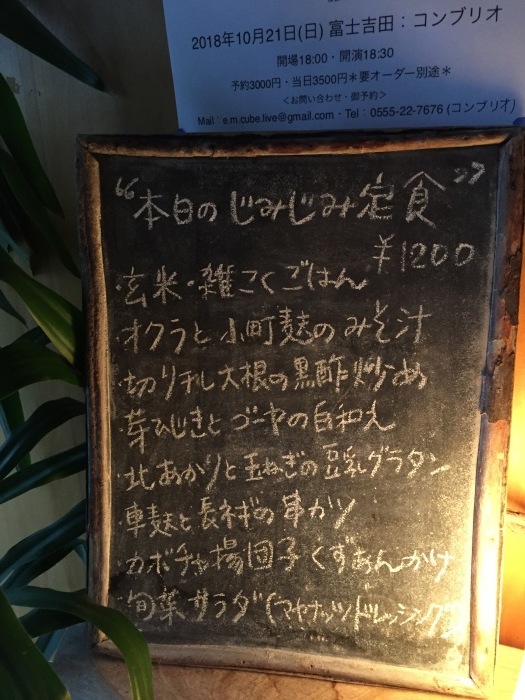 2018年10月21日(日) 富士吉田：コンブリオ
開場18:00・開演18:30
予約3000円・当日3500円＊要オーダー別途＊
＜お問い合わせ・御予約＞
Mail：e.m.cube.live@gmail.com・Tel：0555-22-7676 (コンブリオ)
“本日の じみじみ定食”
￥1200
・玄米・雑こくごはん
・オクラと小町麩のみそ汁
・切り干し大根の黒酢炒め
・芽ひじきとゴーヤの白和え
・北あかりと玉ねぎの豆乳グラタン
・車麩と長ネギの串カツ
・カボチャ揚団子くずあんかけ
・旬菜サラダ(マヤナッツドレッシング)